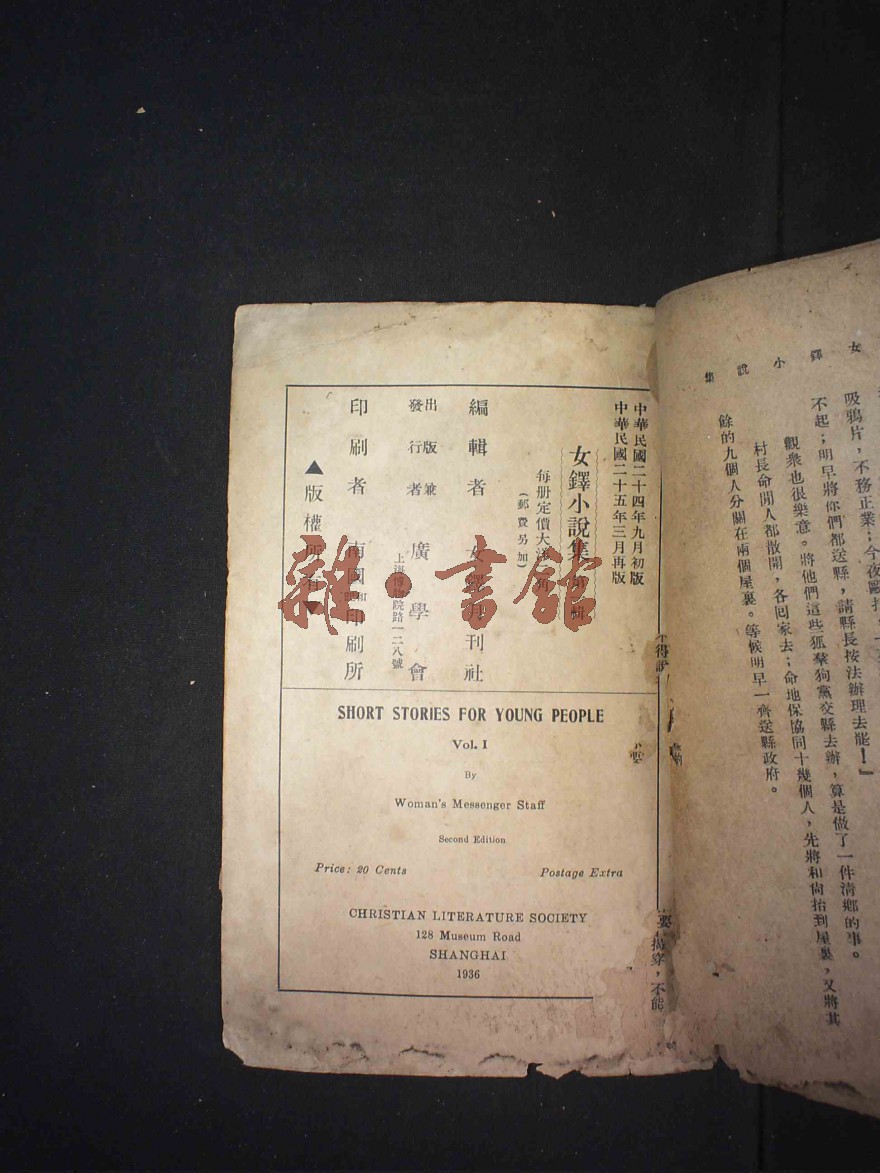 女鐸小說集
吸鴉片，不務正業；今夜
不起；明早將你們都送縣，請縣長按法辦理去能！』
觀衆也很樂意。將他們這些狐羣狗黨交縣去辦，算是做了一件清鄉的事。
村長命閒人都散開，各回家去；命地保協同十幾個人，先將和尙抬到屋裏，又將其
餘的九個人分關在兩個屋裏。等候明早一齊送縣政府。
中華民國二十四年九月初版
中華民國二十五年三月再版
女鐸小說集
每册定價大洋
（郵費另加）
編輯者 女鐸月刊社
出版兼發行者 廣學會
上海博物院路一二八號
印刷者 南國印刷所
▲版權所有▼
雜·書館
SHORT STORIES FOR YOUNG PEOPLE
Vol. I
By
Woman's Messenger Staff
Second Edition
Price: 20 Cents Postage Extra
CHRISTIAN LITERATURE SOCIETY
128 Museum Road
SHANGHAI
1936
揭穿，不能